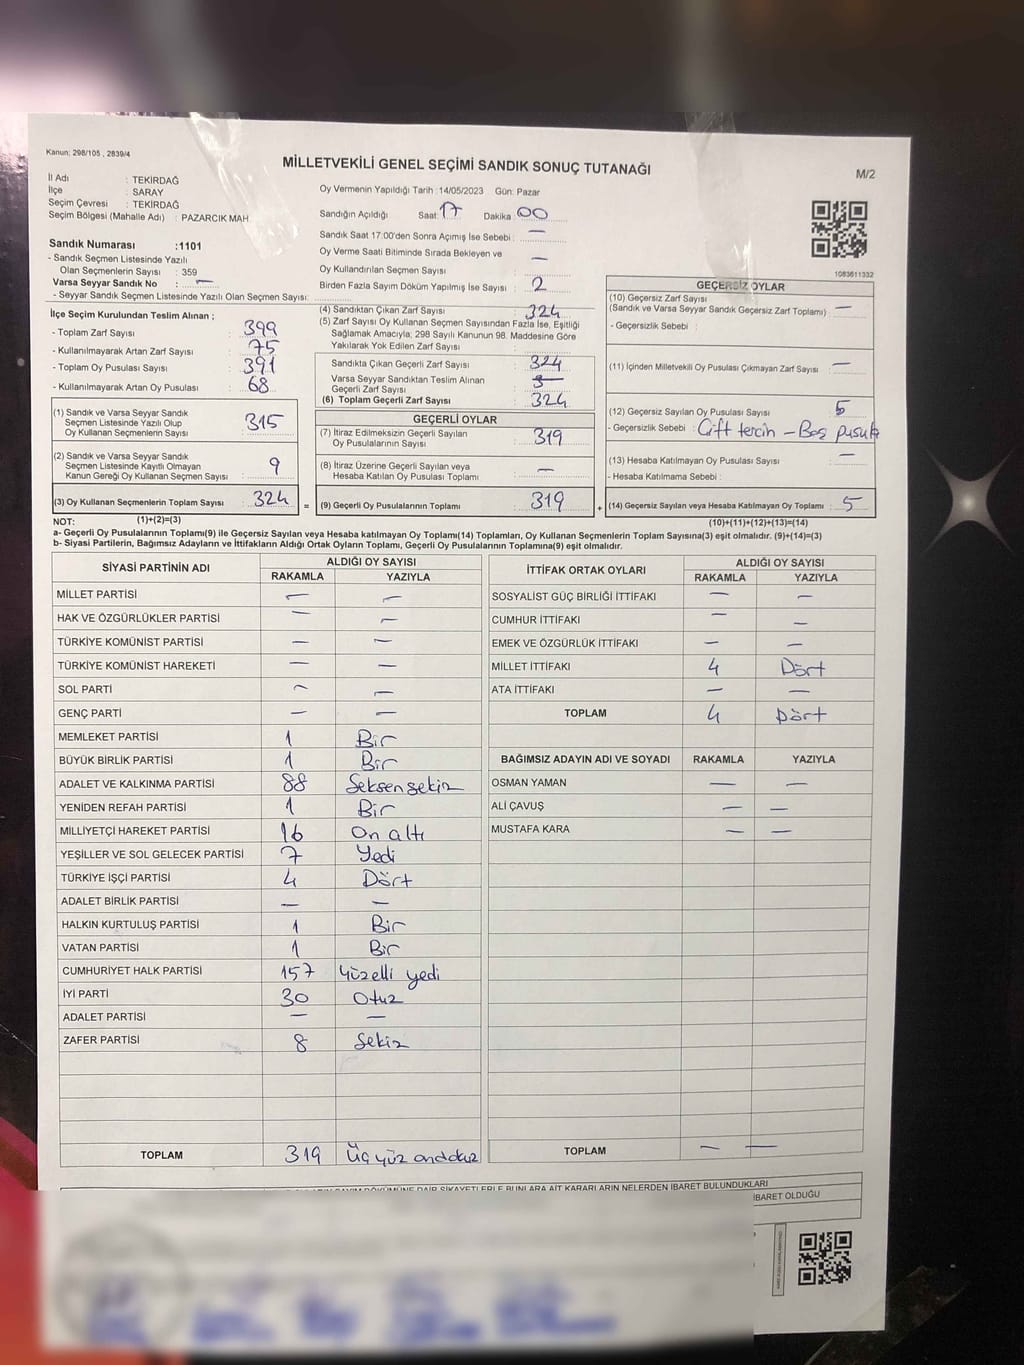 Kanun; 298/105 , 2839/4
MİLLETVEKİLİ GENEL SEÇİMİ SANDIK SONUÇ TUTANAĞI
M/2
İl Adı : TEKİRDAĞ
İlçe : SARAY
Seçim Çevresi : TEKİRDAĞ
Seçim Bölgesi (Mahalle Adı) : PAZARCIK MAH
Oy Vermenin Yapıldığı Tarih :14/05/2023 Gün: Pazar
Sandığın Açıldığı Saat: 17 Dakika : 00
Sandık Saat 17:00'den Sonra Açımış İse Sebebi : —
Oy Verme Saati Bitiminde Sırada Bekleyen ve
Oy Kullandırılan Seçmen Sayısı : —
Birden Fazla Sayım Döküm Yapılmış İse Sayısı : 2
1083611332
Sandık Numarası :1101
- Sandık Seçmen Listesinde Yazılı
Olan Seçmenlerin Sayısı : 359
Varsa Seyyar Sandık No : —
- Seyyar Sandık Seçmen Listesinde Yazılı Olan Seçmen Sayısı:
İlçe Seçim Kurulundan Teslim Alınan :
- Toplam Zarf Sayısı : 399
- Kullanılmayarak Artan Zarf Sayısı : 75
- Toplam Oy Pusulası Sayısı : 391
- Kullanılmayarak Artan Oy Pusulası : 68
(1) Sandık ve Varsa Seyyar Sandık
Seçmen Listesinde Yazılı Olup
Oy Kullanan Seçmenlerin Sayısı : 315
(2) Sandık ve Varsa Seyyar Sandık
Seçmen Listesinde Kayıtlı Olmayan
Kanun Gereği Oy Kullanan Seçmen Sayısı : 9
(3) Oy Kullanan Seçmenlerin Toplam Sayısı : 324
(1)+(2)=(3)
(4) Sandıktan Çıkan Zarf Sayısı : 324
(5) Zarf Sayısı Oy Kullanan Seçmen Sayısından Fazla İse, Eşitliği
Sağlamak Amacıyla; 298 Sayılı Kanunun 98. Maddesine Göre
Yakılarak Yok Edilen Zarf Sayısı :
Sandıkta Çıkan Geçerli Zarf Sayısı : 324
Varsa Seyyar Sandıktan Teslim Alınan
Geçerli Zarf Sayısı :
(6) Toplam Geçerli Zarf Sayısı : 324
GEÇERLİ OYLAR
(7) İtiraz Edilmeksizin Geçerli Sayılan
Oy Pusulalarının Sayısı : 319
(8) İtiraz Üzerine Geçerli Sayılan veya
Hesaba Katılan Oy Pusulası Toplamı : —
= (9) Geçerli Oy Pusulalarının Toplamı : 319
GEÇERSİZ OYLAR
(10) Geçersiz Zarf Sayısı
(Sandık ve Varsa Seyyar Sandık Geçersiz Zarf Toplamı) : —
- Geçersizlik Sebebi :
(11) İçinden Milletvekili Oy Pusulası Çıkmayan Zarf Sayısı : —
(12) Geçersiz Sayılan Oy Pusulası Sayısı : 5
- Geçersizlik Sebebi : Çift tercih – Boş pusula
(13) Hesaba Katılmayan Oy Pusulası Sayısı : —
- Hesaba Katılmama Sebebi :
+ (14) Geçersiz Sayılan veya Hesaba Katılmayan Oy Toplamı : 5
(10)+(11)+(12)+(13)=(14)
NOT:
a- Geçerli Oy Pusulalarının Toplamı(9) ile Geçersiz Sayılan veya Hesaba katılmayan Oy Toplamı(14) Toplamları, Oy Kullanan Seçmenlerin Toplam Sayısına(3) eşit olmalıdır. (9)+(14)=(3)
b- Siyasi Partilerin, Bağımsız Adayların ve İttifakların Aldığı Ortak Oyların Toplamı, Geçerli Oy Pusulalarının Toplamına(9) eşit olmalıdır.
SİYASİ PARTİNİN ADI ALDIĞI OY SAYISI
RAKAMLA YAZIYLA
MİLLET PARTİSİ — —
HAK VE ÖZGÜRLÜKLER PARTİSİ — —
TÜRKİYE KOMÜNİST PARTİSİ — —
TÜRKİYE KOMÜNİST HAREKETİ — —
SOL PARTİ — —
GENÇ PARTİ — —
MEMLEKET PARTİSİ 1 Bir
BÜYÜK BİRLİK PARTİSİ 1 Bir
ADALET VE KALKINMA PARTİSİ 88 Seksen sekiz
YENİDEN REFAH PARTİSİ 1 Bir
MİLLİYETÇİ HAREKET PARTİSİ 16 On altı
YEŞİLLER VE SOL GELECEK PARTİSİ 7 Yedi
TÜRKİYE İŞÇİ PARTİSİ 4 Dört
ADALET BİRLİK PARTİSİ — —
HALKIN KURTULUŞ PARTİSİ 1 Bir
VATAN PARTİSİ 1 Bir
CUMHURİYET HALK PARTİSİ 157 Yüzelli yedi
İYİ PARTİ 30 Otuz
ADALET PARTİSİ — —
ZAFER PARTİSİ 8 Sekiz
TOPLAM 319 Üçyüz ondokuz
İTTİFAK ORTAK OYLARI ALDIĞI OY SAYISI
RAKAMLA YAZIYLA
SOSYALİST GÜÇ BİRLİĞİ İTTİFAKI — —
CUMHUR İTTİFAKI — —
EMEK VE ÖZGÜRLÜK İTTİFAKI — —
MİLLET İTTİFAKI 4 Dört
ATA İTTİFAKI — —
TOPLAM 4 Dört
BAĞIMSIZ ADAYIN ADI VE SOYADI RAKAMLA YAZIYLA
OSMAN YAMAN — —
ALİ ÇAVUŞ — —
MUSTAFA KARA — —
TOPLAM — —
DÖKÜMÜNE DAİR ŞİKAYETLERLE BUNLARA AİT KARARLARIN NELERDEN İBARET BULUNDUKLARI
İBARET OLDUĞU